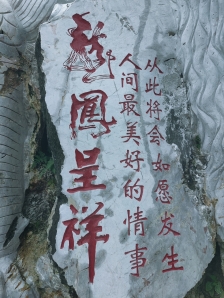 从此将会如愿发生
人间最美好的情事
龙鳳呈祥